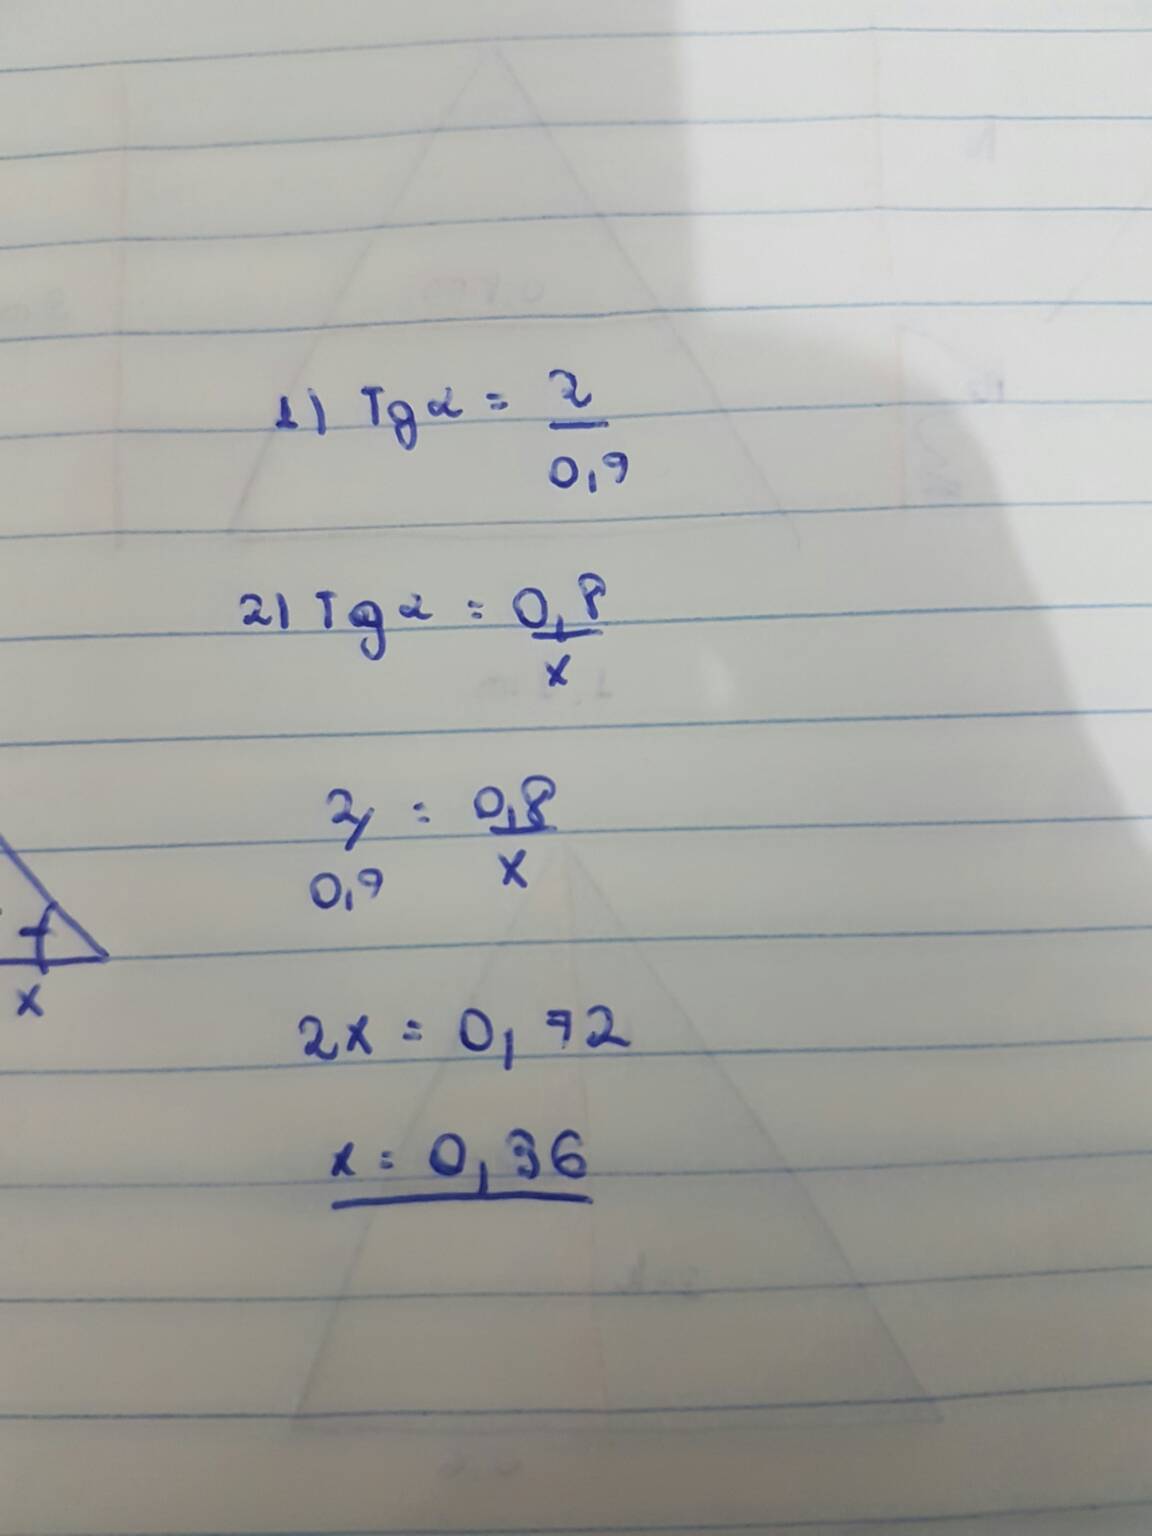 1) Tg α = 2
0,9
2) Tg α = 0,8
x
2 = 0,8
0,9 x
x
2x = 0,72
x = 0,36